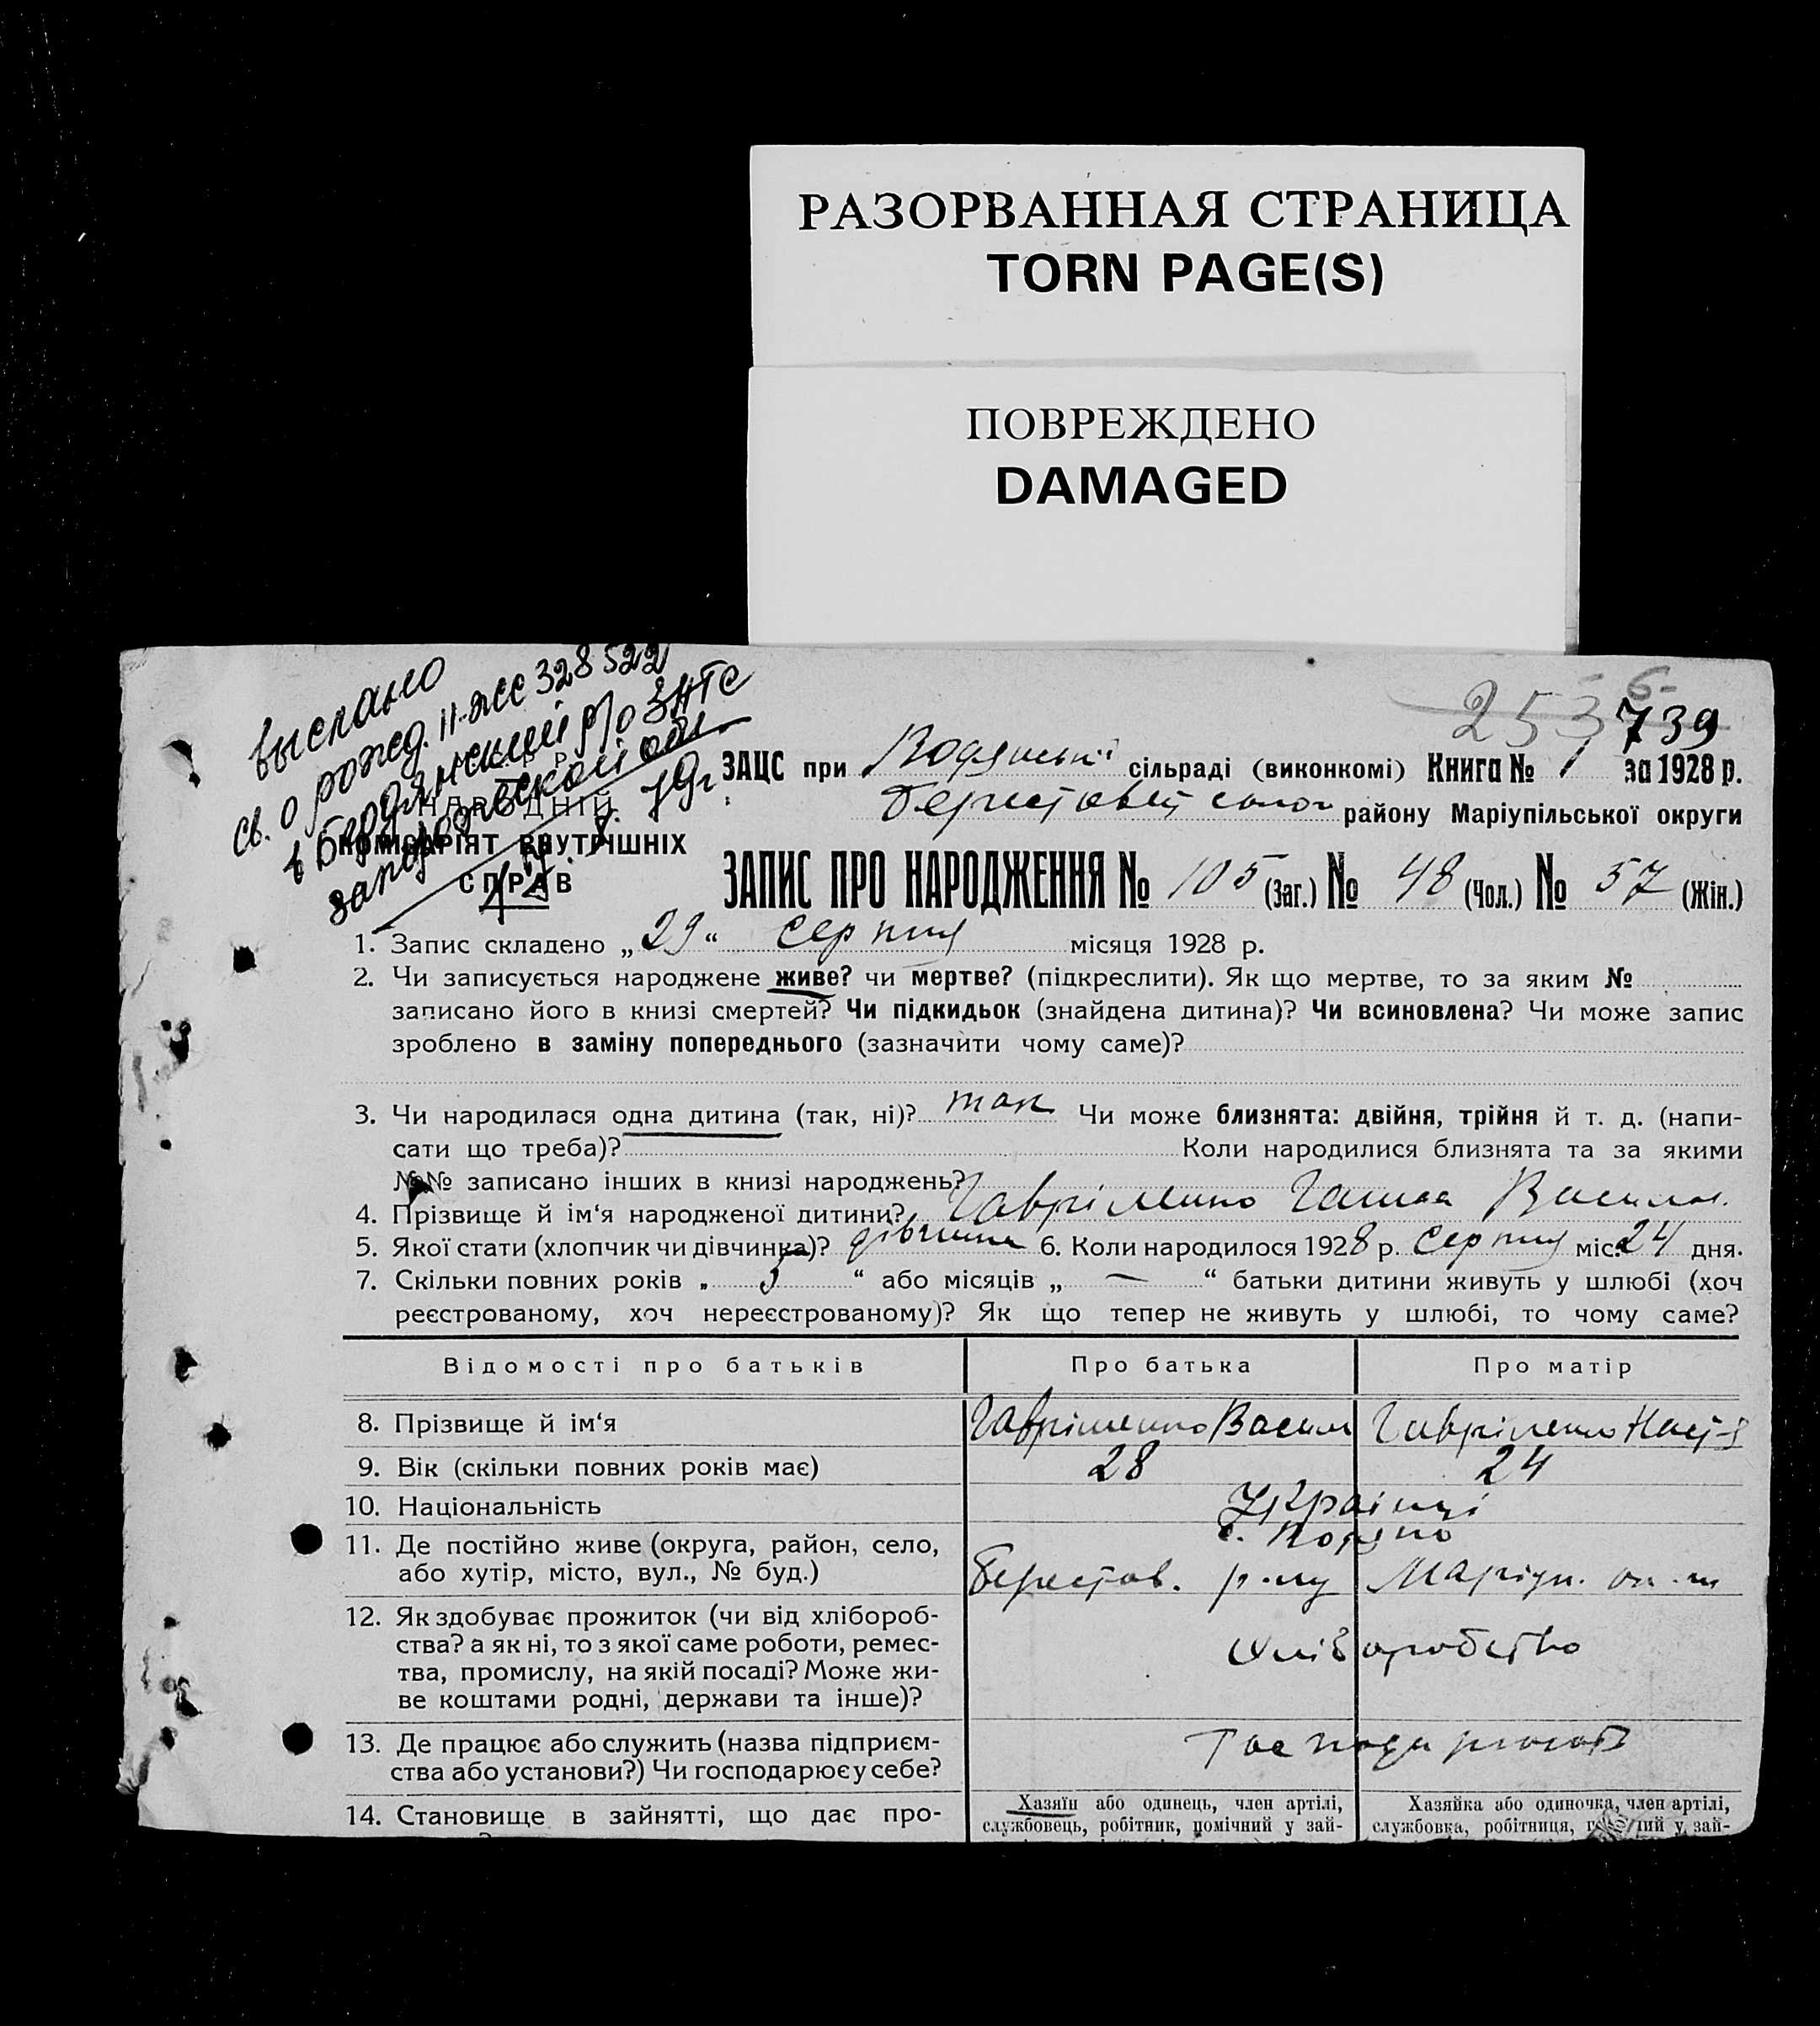 РАЗОРВАННАЯ СТРАНИЦА
TORN PAGE(S)
ПОВРЕЖДЕНО
DAMAGED
выслано
св. о рожд. II-ЖС 328522
в Бердянский р/о ЗАГС
запорожской обл.
253
739
НАРОДНІЙ
КОМІСАРІЯТ ВНУТРІШНІХ
СПРАВ
ЗАЦС при Водянські сільраді (виконкомі) Книга № 1 за 1928 р.
району Маріупільської округи
ЗАПИС ПРО НАРОДЖЕННЯ № 105 (Заг.) № 48 (Чол.) № 57 (Жін.)
1. Запис складено „29“ серпня місяця 1928 р.
2. Чи записується народжене живе? чи мертве? (підкреслити). Як що мертве, то за яким №
записано його в книзі смертей? Чи підкидьок (знайдена дитина)? Чи всиновлена? Чи може запис
зроблено в заміну попереднього (зазначити чому саме)?
3. Чи народилася одна дитина (так, ні)? так Чи може близнята: двійня, трійня й т. д. (напи-
сати що треба)? Коли народилися близнята та за якими
№№ записано інших в книзі народжень?
4. Прізвище й ім‘я народженої дитини? Гавріленко Ганна Васил.
5. Якої стати (хлопчик чи дівчинка)? дівчина 6. Коли народилося 1928 р. Серпня міс. 24 дня.
7. Скільки повних років „ 5 “ або місяців „ — “ батьки дитини живуть у шлюбі (хоч
реєстрованому, хоч нереєстрованому)? Як що тепер не живуть у шлюбі, то чому саме?
Відомості про батьків Про батька Про матір
8. Прізвище й ім‘я Гавріленко Васил Гавріленко Наст-я
9. Вік (скільки повних років має) 28 24
10. Національність Українці
с. Водяно
11. Де постійно живе (округа, район, село,
або хутір, місто, вул., № буд.) Берестов. р-ну Маріуп. ок-ги
12. Як здобуває прожиток (чи від хлібороб-
ства? а як ні, то з якої саме роботи, ремес- хліборобство
тва, промислу, на якій посаді? Може жи-
ве коштами родні, держави та інше)?
13. Де працює або служить (назва підприєм-
ства або установи?) Чи господарює у себе?
14. Становище в зайнятті, що дає про-
Хазяїн або одинець, член артілі,
службовець, робітник, помічний у зай-
Хазяйка або одиночка, член артілі,
службовка, робітниця, у зай-